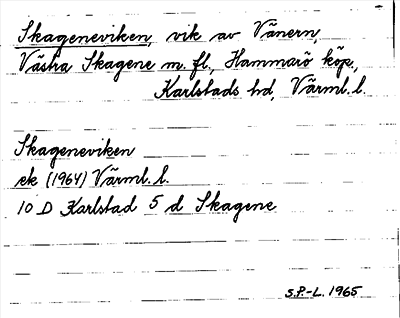 Skageneviken, vik av Vänern,
Västra Skagene m. fl., Hammarö köp.,
Karlstads hd, Värml. l.
Skageneviken
ek (1964) Värml. l.
10 D Karlstad 5 d Skagene
S.P.-L. 1965